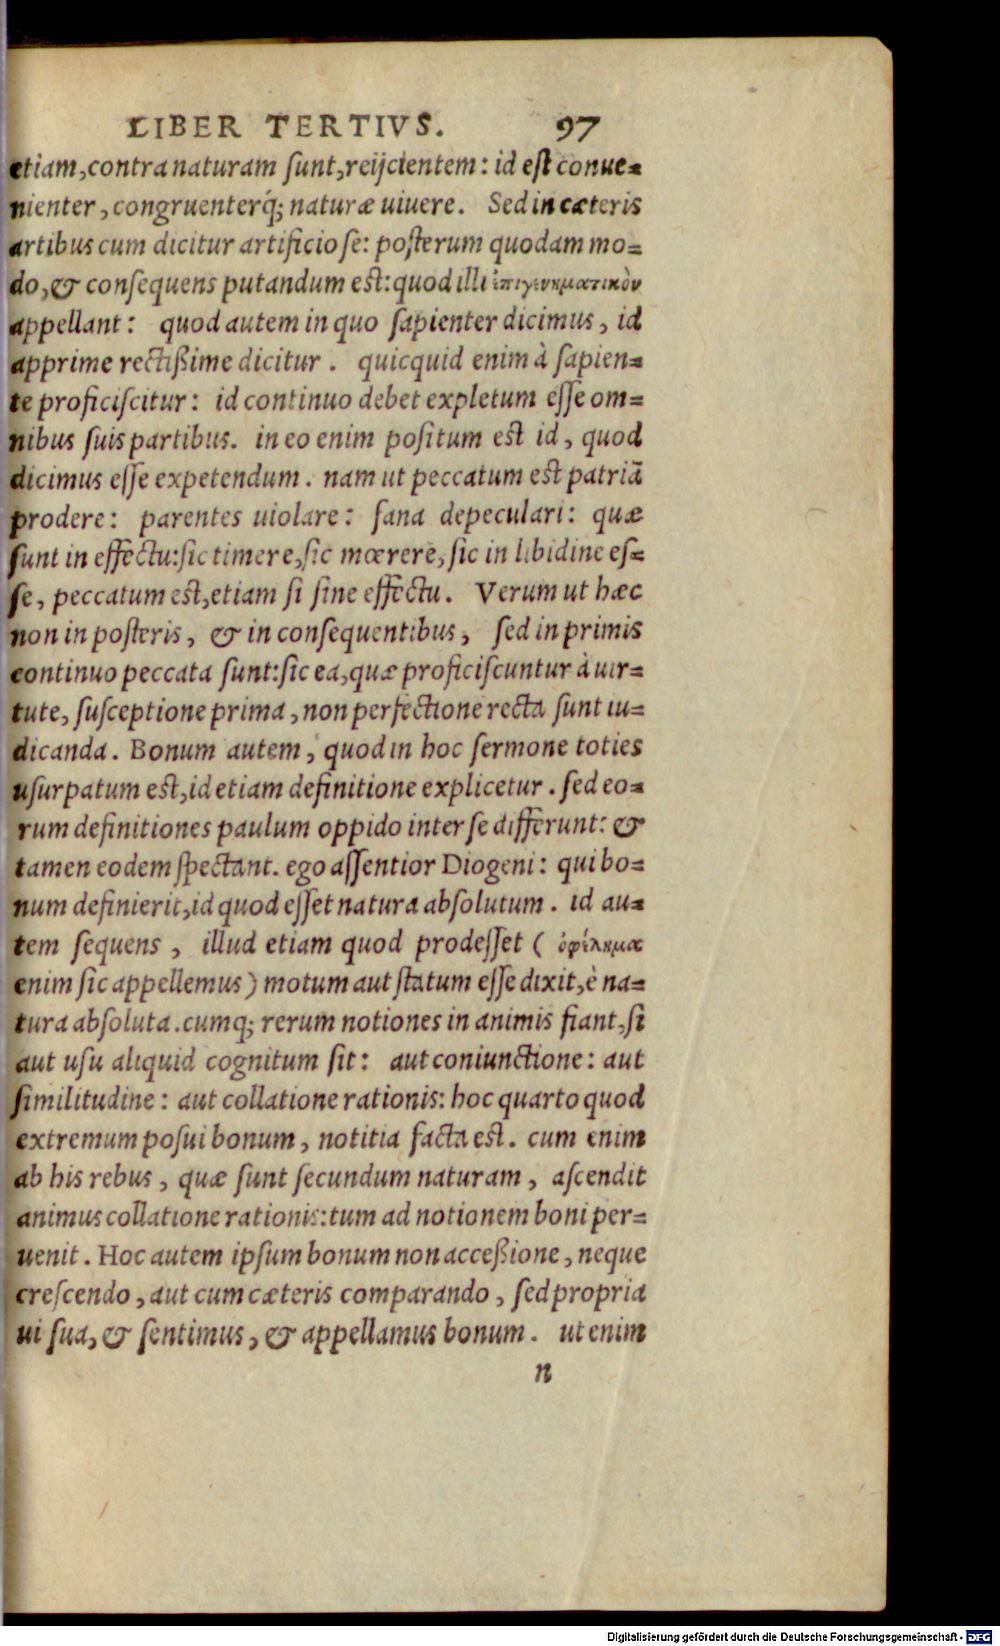 LIBER TERTIVS. 97
etiam, contra naturam sunt, reijcientem: id est conue=
nienter, congruenterq́; naturæ uiuere. Sed in cæteris
artibus cum dicitur artificiose: posterum quodam mo=
do, & consequens putandum est: quod illi ἐπιγεννηματικὸν
appellant: quod autem in quo sapienter dicimus, id
apprime rectißime dicitur. quicquid enim à sapien=
te proficiscitur: id continuo debet expletum esse om=
nibus suis partibus. in eo enim positum est id, quod
dicimus esse expetendum. nam ut peccatum est patriā
prodere: parentes uiolare: fana depeculari: quæ
sunt in effectu: sic timere, sic mœrere, sic in libidine es=
se, peccatum est, etiam si sine effectu. Verum ut hæc
non in posteris, & in consequentibus, sed in primis
continuo peccata sunt: sic ea, quæ proficiscuntur à uir=
tute, susceptione prima, non perfectione recta sunt iu=
dicanda. Bonum autem, quod in hoc sermone toties
usurpatum est, id etiam definitione explicetur. sed eo=
rum definitiones paulum oppido inter se differunt: &
tamen eodem spectant. ego assentior Diogeni: qui bo=
num definierit, id quod esset natura absolutum. id au=
tem sequens, illud etiam quod prodesset (ὀφέλημα
enim sic appellemus) motum aut statum esse dixit, è na=
tura absoluta. cumq; rerum notiones in animis fiant, si
aut usu aliquid cognitum sit: aut coniunctione: aut
similitudine: aut collatione rationis: hoc quarto quod
extremum posui bonum, notitia facta est. cum enim
ab his rebus, quæ sunt secundum naturam, ascendit
animus collatione rationis: tum ad notionem boni per=
uenit. Hoc autem ipsum bonum non acceßione, neque
crescendo, aut cum cæteris comparando, sed propria
ui sua, & sentimus, & appellamus bonum. ut enim
n
Digitalisierung gefördert durch die Deutsche Forschungsgemeinschaft - DFG